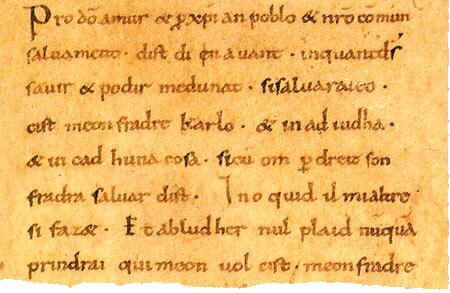 Pro dõ amur & p xpĩan poblo & nrõ cõmun
saluament · dist di en auant · inquantdš
sauir & podir medunat · sisaluaraieo ·
cist meon fradre karlo · & in ad iudha ·
& in cad huna cosa · sicũ om p dreit son
fradra saluar dist · Ino quid il mialtre
si faz& · Et abludher nul plaid nũquã
prindrai qui meon uol cist · meon fradre